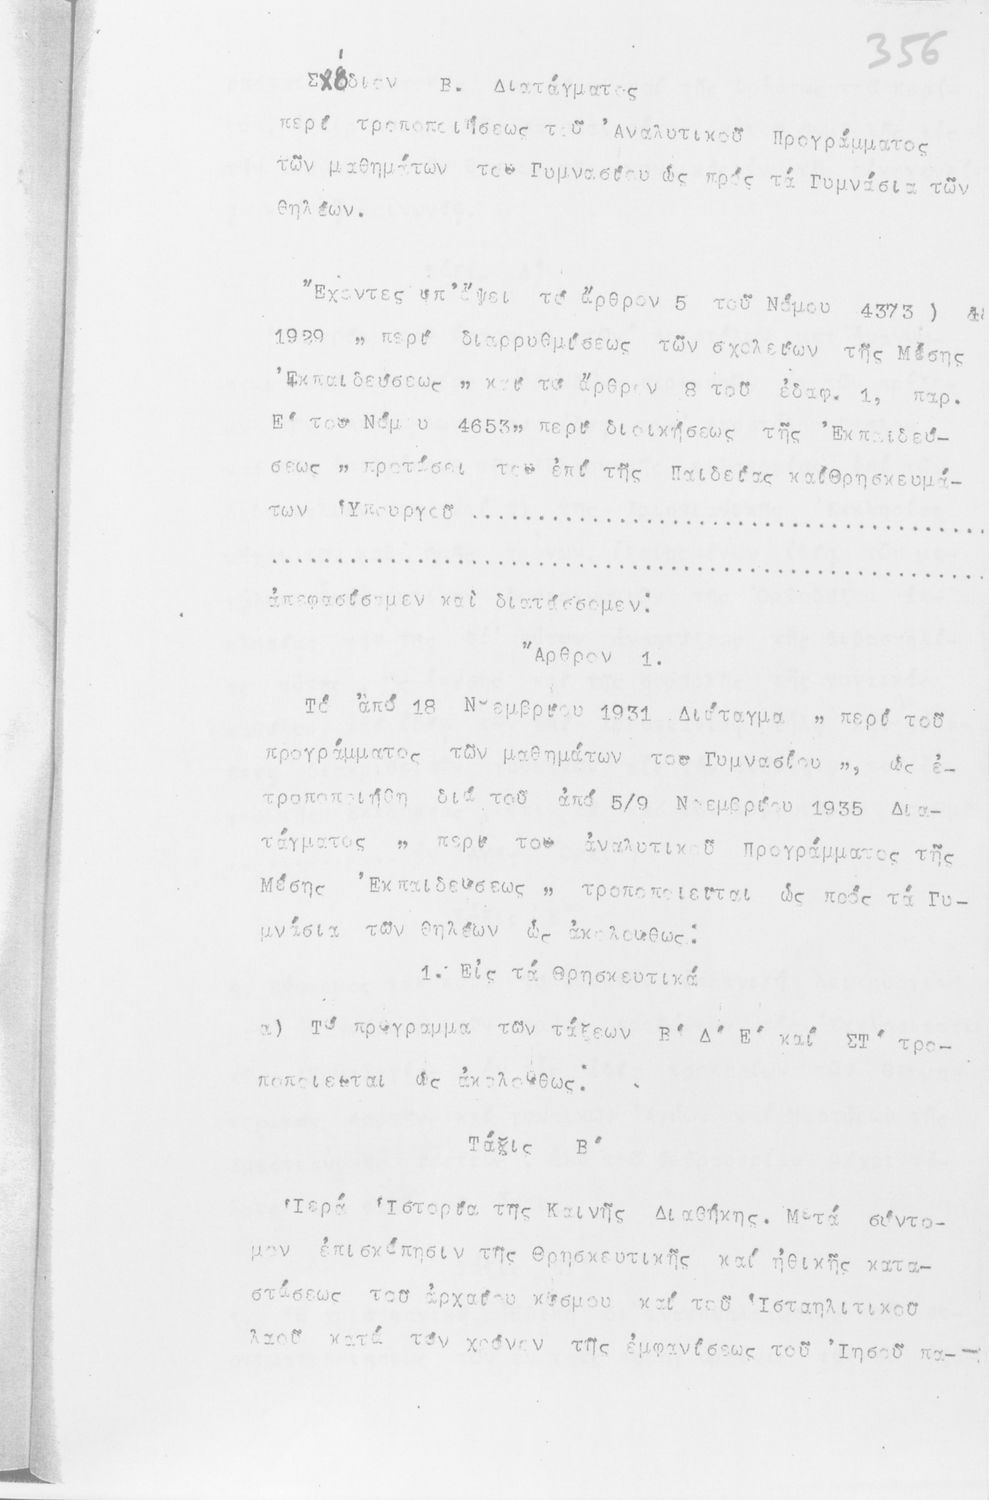 356
Σχέδιον Β. Διατάγματος
περί τροποποιήσεως τοῦ Ἀναλυτικοῦ Προγράμματος
τῶν μαθημάτων του Γυμνασίου ὡς πρός τά Γυμνάσια τῶν
θηλέων.
Ἔχοντες ὑπ' ὄψει τό ἄρθρον 5 τοῦ Νόμου 4373 )
1929 " περί διαρρυθμίσεως τῶν σχολείων τῆς Μέσης
Ἐκπαιδεύσεως " καί τό ἄρθρον 8 τοῦ ἐδαφ. 1, παρ.
Ε' του Νόμ υ 4653" περί διοικήσεως τῆς Ἐκπαιδεύ-
σεως " προτάσει του ἐπί τῆς Παιδείας καίΘρησκευμά-
των Ὑπουργοῦ ........................................
.....................................................
ἀπεφασίσαμεν καὶ διατάσσομεν:
Ἄρθρον 1.
Τό ἀπό 18 Νοεμβρίου 1931 Διάταγμα " περί τοῦ
προγράμματος τῶν μαθημάτων του Γυμνασίου ", ὡς ἐ-
τροποποιήθη διά τοῦ ἀπό 5/9 Νοεμβρίου 1935 Δια-
τάγματος " περί του ἀναλυτικοῦ προγράμματος τῆς
Μέσης Ἐκπαιδεύσεως " τροποποιείται ὡς πρός τά Γυ-
μνάσια τῶν θηλέων ὡς ἀκολούθως:
1. Εἰς τά Θρησκευτικά
α) Τό πρόγραμμα τῶν τάξεων Β' Δ' Ε' καί ΣΤ' τρο-
ποποιείται ὡς ἀκολούθως:
Τάξις Β'
Ἱερά Ἱστορία της Καινῆς Διαθήκης. Μετά σύντο-
μον ἐπισκόπησιν τῆς θρησκευτικῆς καί ἠθικῆς κατα-
στάσεως τοῦ ἀρχαίου κόσμου καί τοῦ Ἱσταηλιτικοῦ
λαοῦ κατά τόν χρόνον τῆς ἐμφανίσεως τοῦ Ἰησοῦ πα-